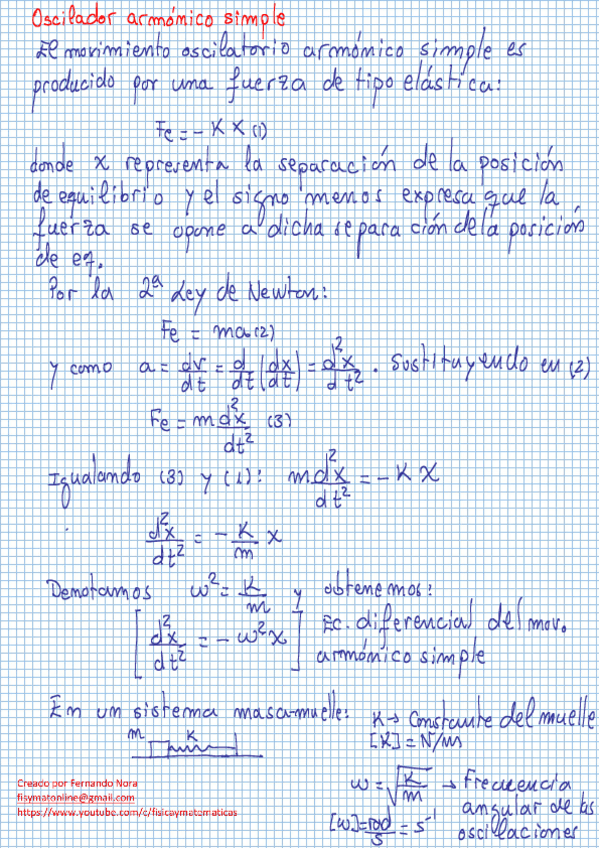 Oscilador armónico simple
El movimiento oscilatorio armónico simple es
producido por una fuerza de tipo elástica:
Fe = - K x (1)
donde x representa la separación de la posición
de equilibrio y el signo menos expresa que la
fuerza se opone a dicha separación de la posición
de eq.
Por la 2ª Ley de Newton:
Fe = ma (2)
y como a = dv/dt = d/dt (dx/dt) = d²x/dt² . Sustituyendo en (2)
Fe = m d²x/dt² (3)
Igualando (3) y (1): m d²x/dt² = - K x
d²x/dt² = - K/m x
Denotamos w² = K/m y obtenemos:
[d²x/dt² = - w²x] Ec. diferencial del mov.
armónico simple
En un sistema masa-muelle: K → Constante del muelle
[K] = N/m
m K
w = √(K/m) → Frecuencia
angular de las
oscilaciones
[w] = rad/s = s⁻¹
Creado por Fernando Nora
fisymatonline@gmail.com
https://www.youtube.com/c/fisicaymatematicas